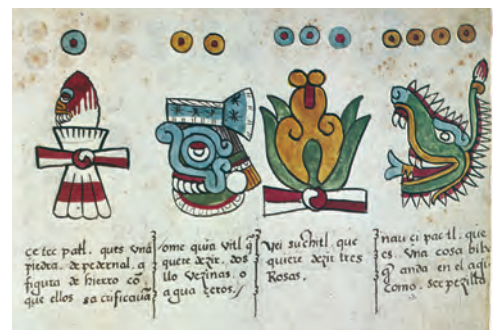 çe tec patl. ques vna
piedra. de pedernal. a
figura de hierro cõ
que ellos sa crificauã
ome quia vitl q̃
quere dezir. dos
llo vezinas. o
agua çeros.
yei suchitl. que
quiere dezir tres
Rosas.
nau çi pac tl. que
es. vna cosa bib
q̃ anda en el aqu
como. ser pezilla